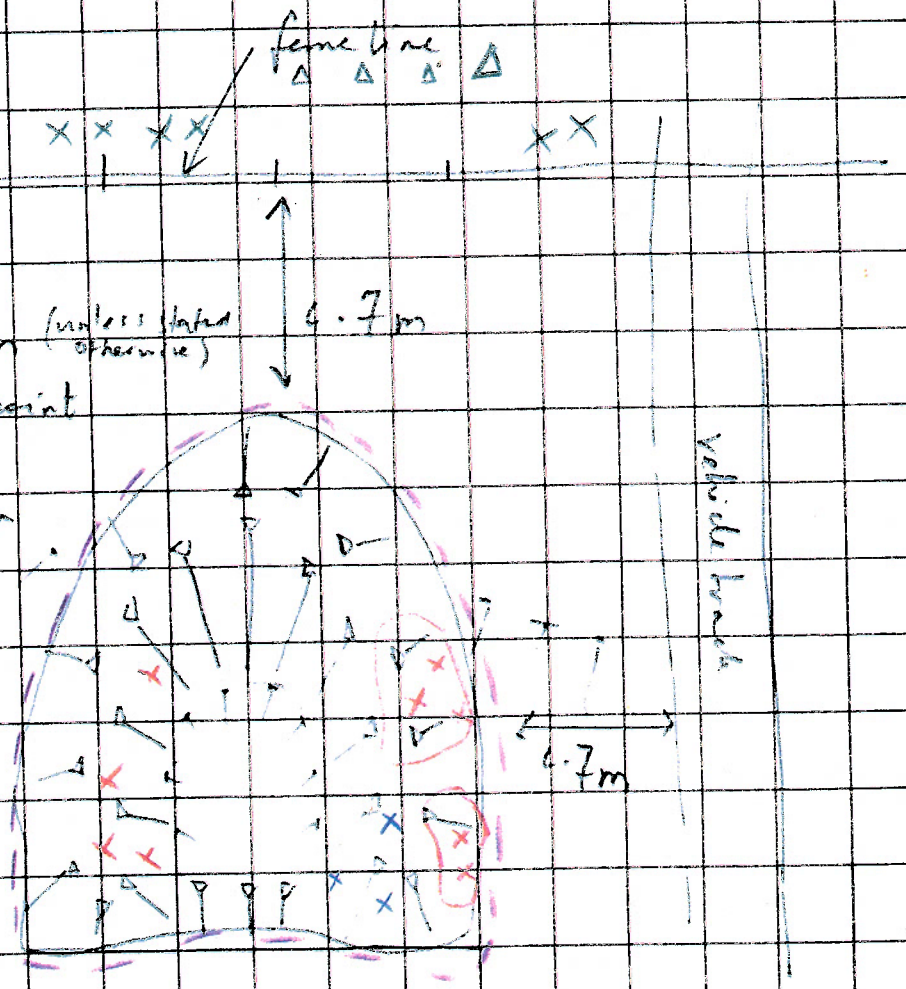 fence line
(unless stated
otherwise)
6.7m
point
vehicle track
6.7m